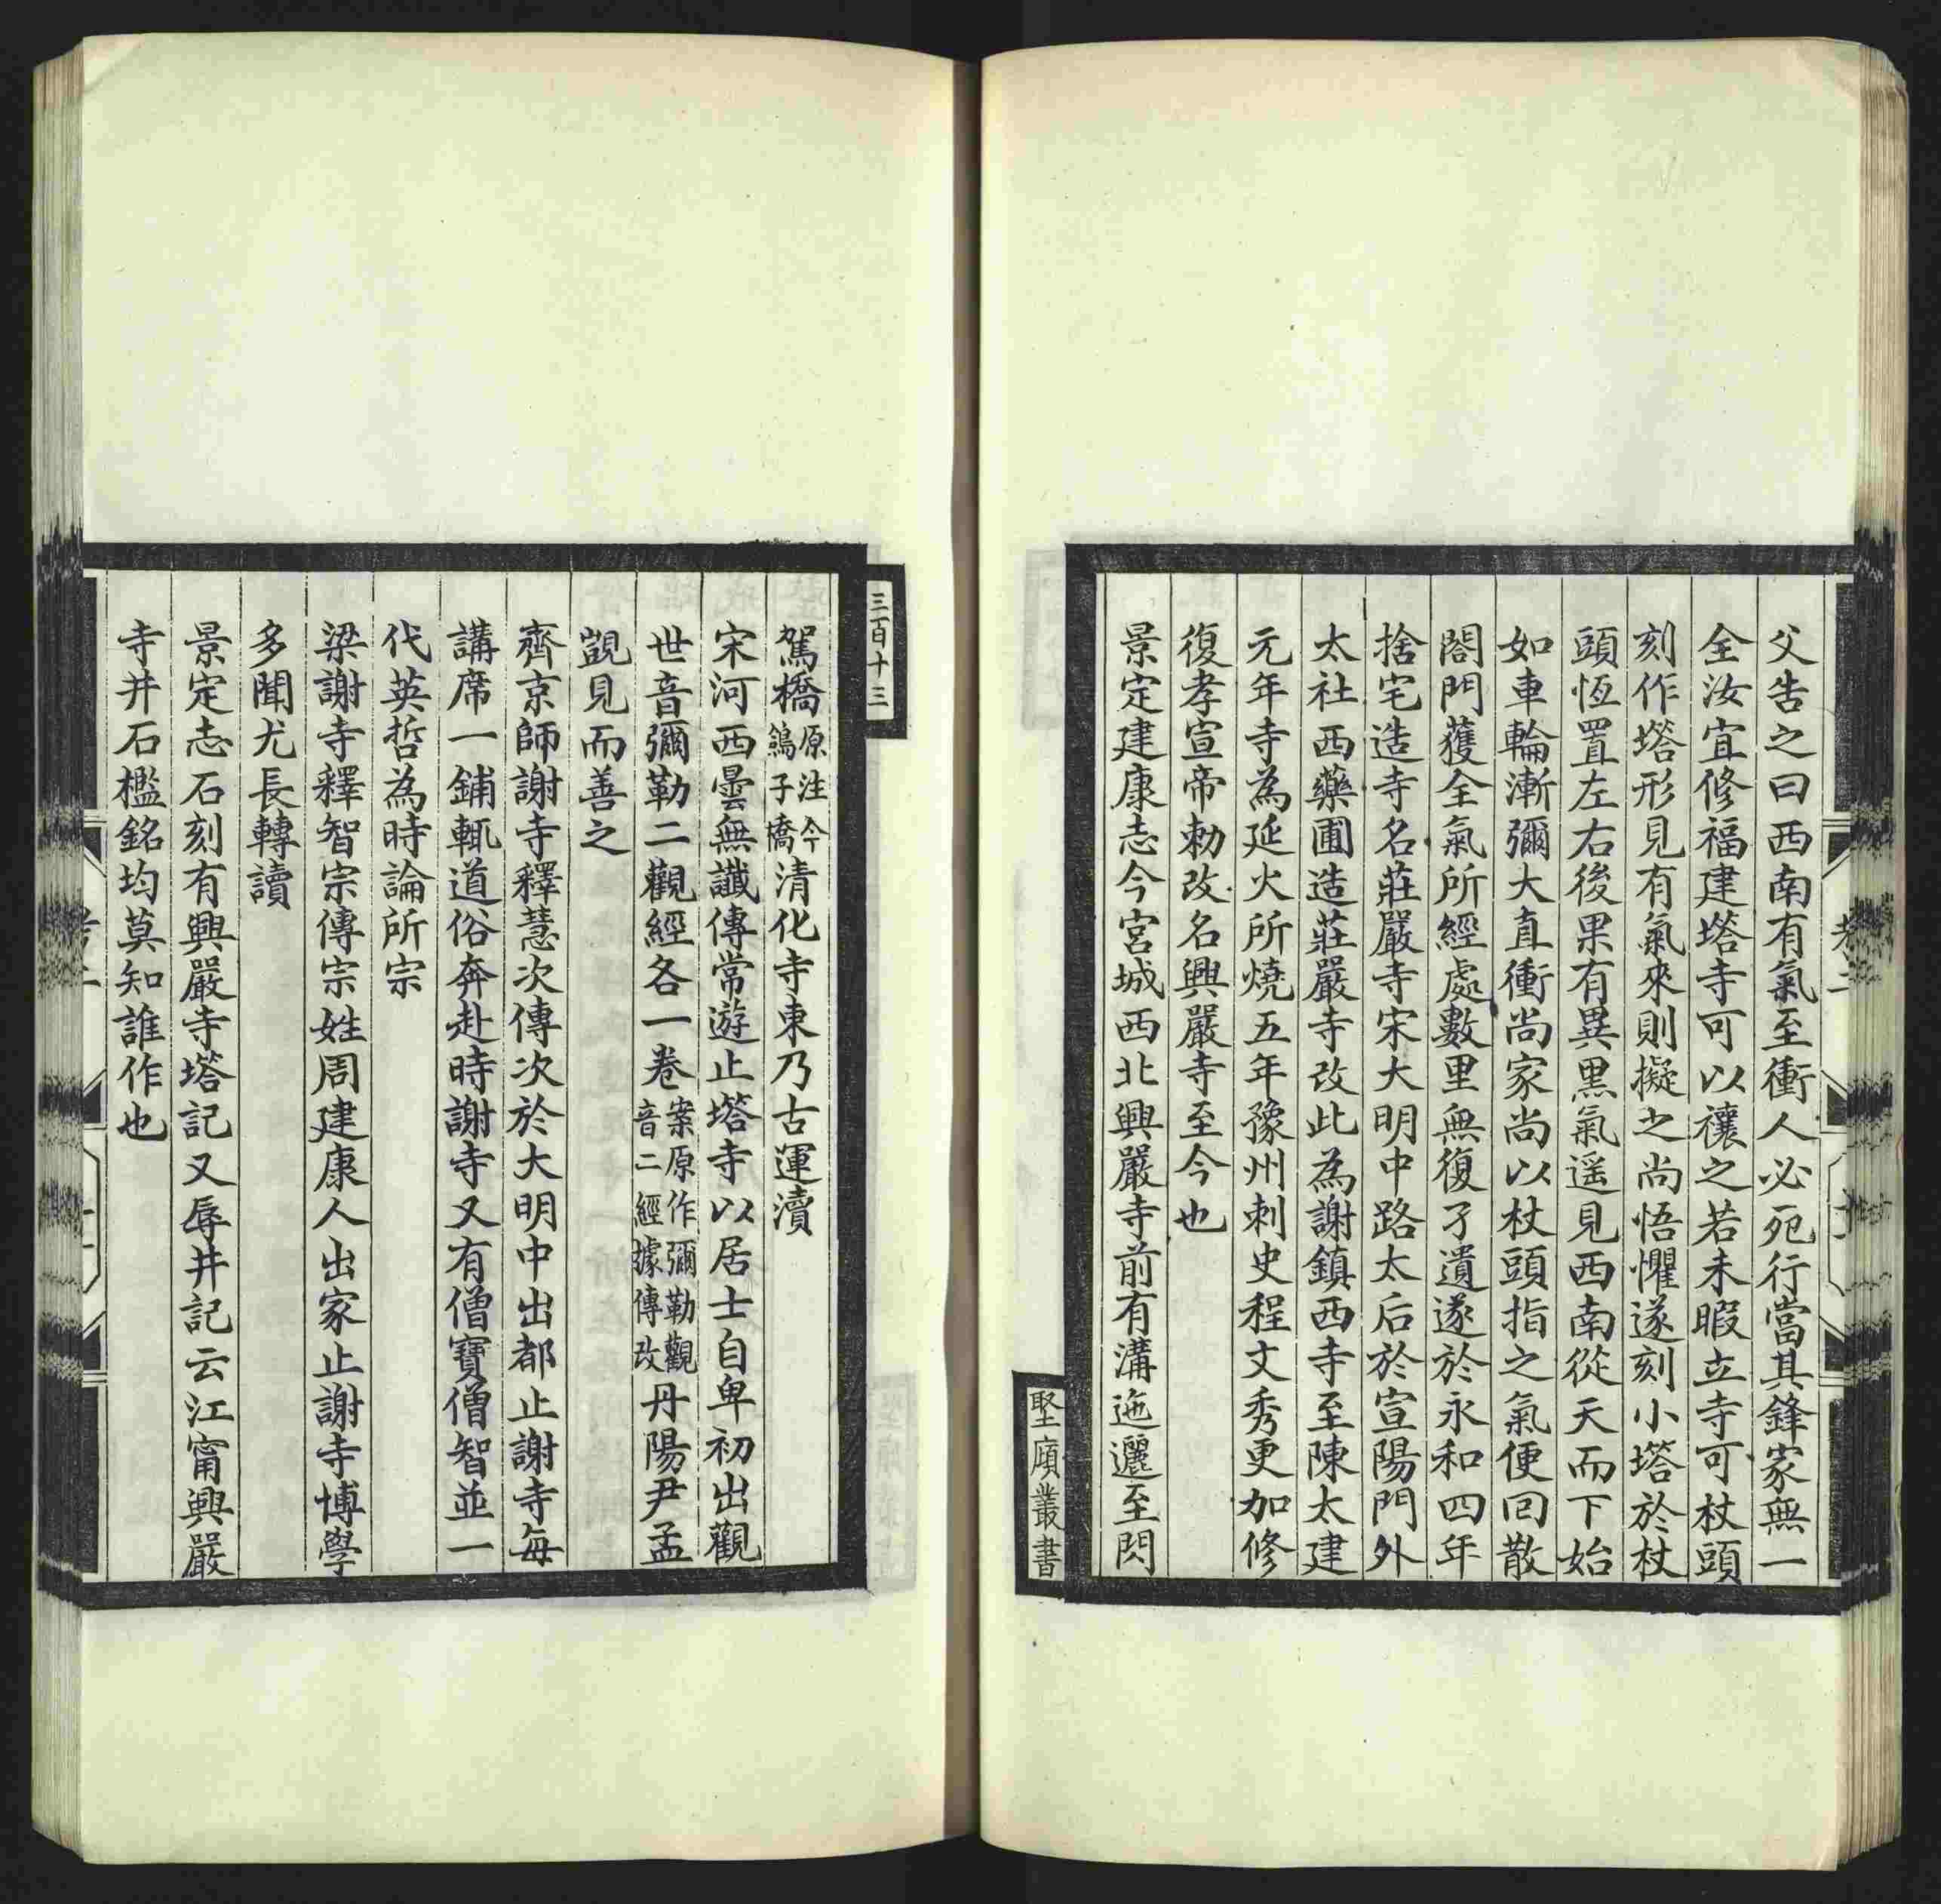 父告之曰西南有氣至衝人必死行當其鋒家無一
全汝宜修福建塔寺可以禳之若未暇立寺可杖頭
刻作塔形見有氣來則擬之尚悟懼遂刻小塔於杖
頭恆置左右後果有異黑氣遥見西南從天而下始
如車輪漸彌大直衝尚家尚以杖頭指之氣便回散
閤門獲全氣所經處數里無復孑遺遂於永和四年
捨宅造寺名莊嚴寺宋大明中路太后於宣陽門外
太社西藥圃造莊嚴寺改此為謝鎮西寺至陳太建
元年寺為延火所燒五年豫州刺史程文秀更加修
復孝宣帝勅改名興嚴寺至今也
景定建康志今宮城西北興嚴寺前有溝迤邐至閃
堅㢈叢書
三百十三
駕橋原注今鴿子橋清化寺東乃古運瀆
宋河西曇無讖傳常遊止塔寺以居士自卑初出觀
世音彌勒二觀經各一卷案原作彌勒觀音二經據傳改丹陽尹孟
覬見而善之
齊京師謝寺釋慧次傳次於大明中出都止謝寺每
講席一鋪輒道俗奔赴時謝寺又有僧寶僧智並一
代英哲為時論所宗
梁謝寺釋智宗傳宗姓周建康人出家止謝寺博學
多聞尤長轉讀
景定志石刻有興嚴寺塔記又辱井記云江甯興嚴
寺井石檻銘均莫知誰作也